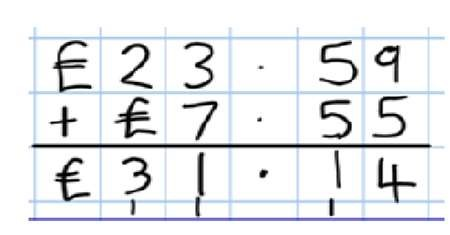 €23.59
+ €7.55
€31.14
1 1 1